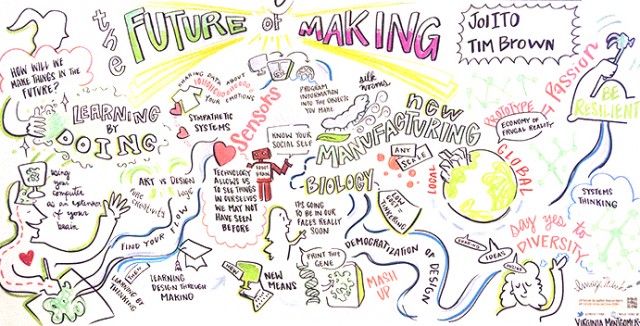 the FUTURE of MAKING
JOI ITO
TIM BROWN
HOW WILL WE
MAKE THINGS IN THE
FUTURE?
LEARNING
BY
DOING
Using
your
computer
as an
of your
brain
SHARING DATA ABOUT
YOUR EMOTIONS
SYMPATHETIC
SYSTEMS
Sensors
PROGRAM
INFORMATION
INTO THE OBJECTS
YOU MAKE
silk
worms
KNOW YOUR
SOCIAL SELF
new
MANUFACTURING
BIOLOGY
IT'S GOING
TO BE IN OUR
FACES REALLY
SOON
ART IS DESIGN
creativity
TECHNOLOGY
ALLOWS US
TO SEE THINGS
IN OURSELVES
WE MAY NOT
HAVE SEEN
BEFORE
FIND YOUR FLOW
THEN
LEARNING BY
THINKING
LEARNING
DESIGN THROUGH
MAKING
NOW
NEW
MEANS
PRINT THIS
GENE
MASH
UP
LOW COST =
TINKERING
DEMOCRATIZATION OF DESIGN
ANT
SCALE
LOCAL
GLOBAL
PROTOTYPE IT
Passion
ECONOMY OF
FRUGAL REALITY
BE
RESILIENT
SYSTEMS
THINKING
say yes to
DIVERSITY
IDEAS
VIRGINIA MONTGOMERY